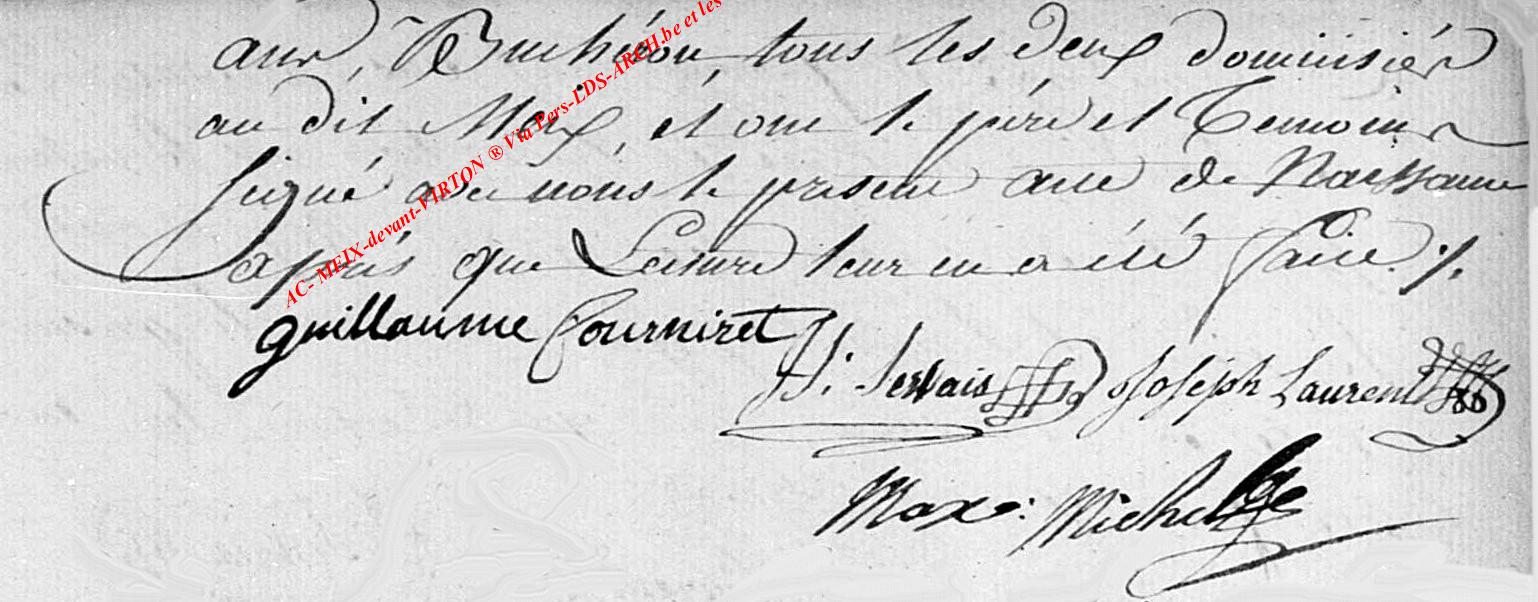 ans, Bucheron, tous les deux dominsiér
au dit Meix, et ont le père et Temoins
signé avec nous le présent acte de Naissance
après que Lecture leur en a été faite ./.
guillaume fourniret
J. Servais Joseph Laurent
Max: Michel
AC- MEIX-devant-VIRTON ® Via Pers-LDS-ARCH.be et les